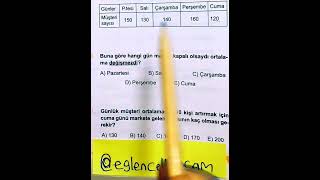 Günler P.tesi Salı Çarşamba Perşembe Cuma
Müşteri sayısı 150 130 140 160 120
Buna göre hangi gün kapalı olsaydı ortala-
ma değişmezdi?
A) Pazartesi C) Çarşamba
D) Cuma
Günlük müşteri ortalama kişi artırmak için
cuma günü markete gelen kaç olması ge-
rekir?
A) 130 B) 140 D) 170 E) 200
@eglencel cam